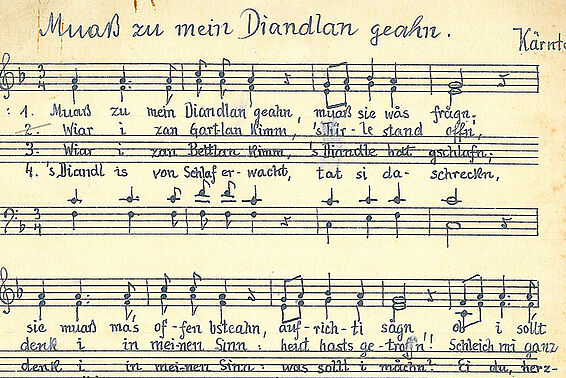 Muaß zu mein Diandlan geahn.
Kärnt
3/4
: 1. Muaß zu mein Diandlan geahn, muaß sie wås frågn;
2. Wiar i zan Gartlan kimm, 's Tür-le stand offn,
3. Wiar i zan Bettlan kimm, 's Diandle hat gschlafn;
4. 's Diandl is von Schlaf er-wacht, tat si da-schreckn,
3/4
sie muaß ma's of-fen bsteahn, auf-rich-ti sågn ob i söllt
denk i in mei-nen Sinn: heut hasts ge-troffn! Schleich mi ganz
denk i in mei-nen Sinn: was sollt i måchn? Ei du, herz-